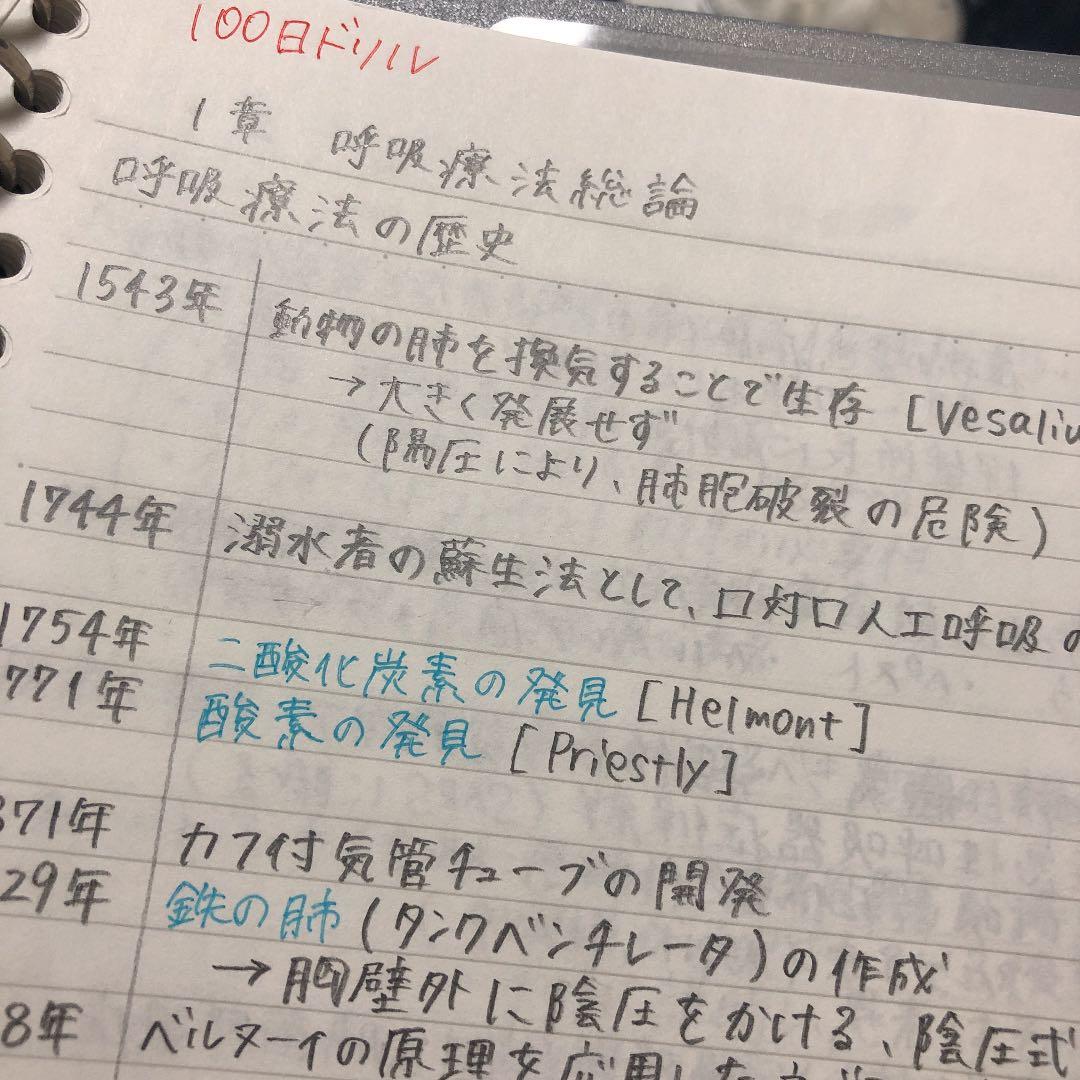 100日ドリル
1章 呼吸療法総論
呼吸療法の歴史
1543年 動物の肺を換気することで生存 [Vesaliu
→大きく発展せず
(陽圧により、肺胞破裂の危険)
1744年 溺水者の蘇生法として、口対口人工呼吸の
1754年 二酸化炭素の発見 [Helmont]
771年 酸素の発見 [Priestly]
871年 カフ付気管チューブの開発
29年 鉄の肺(タンクベンチレータ)の作成
→胸壁外に陰圧をかける、陰圧式
8年 ベルヌーイの原理を応用した